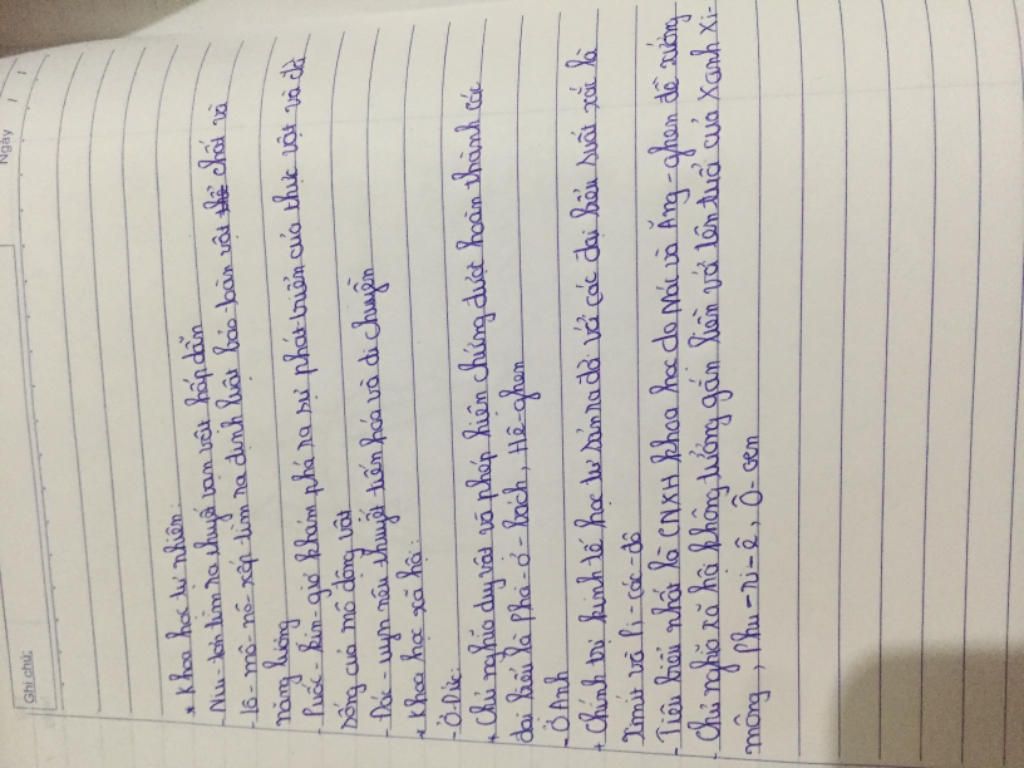 Ghi chú:
Ngày / /
* Khoa học tự nhiên:
- Niu-tơn tìm ra thuyết vạn vật hấp dẫn
- lô-mô-nô-xốp tìm ra định luật bảo toàn vật chất và
năng lượng
- Puốc-kin-giơ khám phá ra sự phát triển của thực vật và đời
sống của mô động vật
- Đác-uyn nêu thuyết tiến hóa và di chuyền
* Khoa học xã hội:
- Ở Đức:
+ Chủ nghĩa duy vật và phép biện chứng được hoàn thành các
đại biểu là Phơ-ơ-bách, Hê-ghen
- Ở Anh
+ Chính trị kinh tế học tư sản ra đời với các đại biểu suất xắc là
Ximít và Ri-các-đô
- Tiêu biểu nhất là CNXH khoa học do Mái và Ăng-ghen đề xướng
- Chủ nghĩa xã hội không tưởng gắn liền với tên tuổi của Xanh Xi-
mông, Phu-ri-ê, Ô-oen